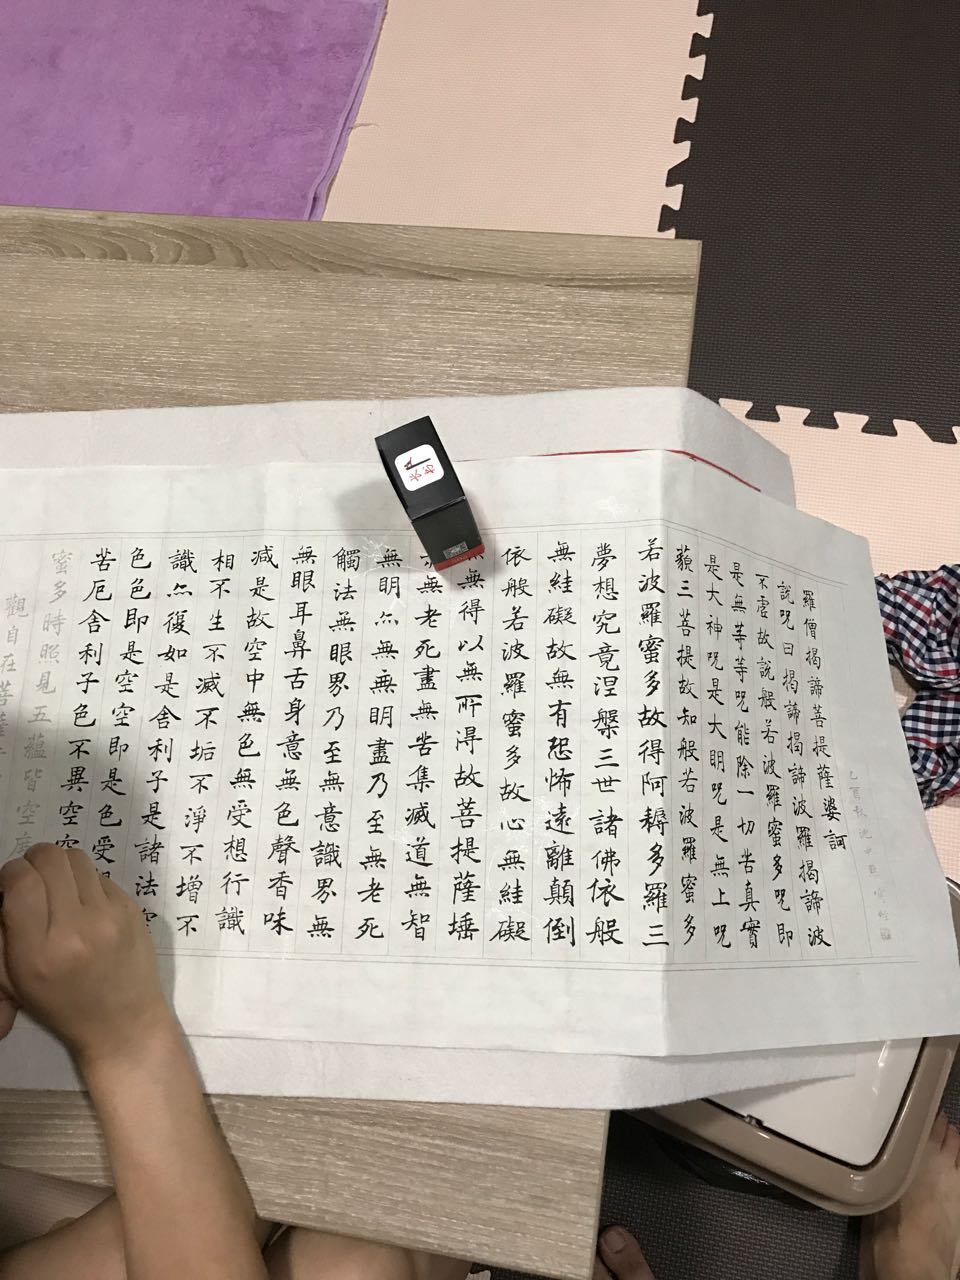 觀自在菩薩
蜜多時照見五蘊皆空度
苦厄舍利子色不異空空
色色即是空空即是色受
識亦復如是舍利子是諸法空
相不生不滅不垢不淨不增不
減是故空中無色無受想行識
無眼耳鼻舌身意無色聲香味
觸法無眼界乃至無意識界無
無明亦無無明盡乃至無老死
無老死盡無苦集滅道無智
無得以無所得故菩提薩埵
依般若波羅蜜多故心無絓礙
無絓礙故無有恐怖遠離顛倒
夢想究竟涅槃三世諸佛依般
若波羅蜜多故得阿耨多羅三
藐三菩提故知般若波羅蜜多
是大神呪是大明呪是無上呪
是無等等呪能除一切苦真實
不虛故說般若波羅蜜多呪即
說呪曰揭諦揭諦波羅揭諦波
羅僧揭諦菩提薩婆訶